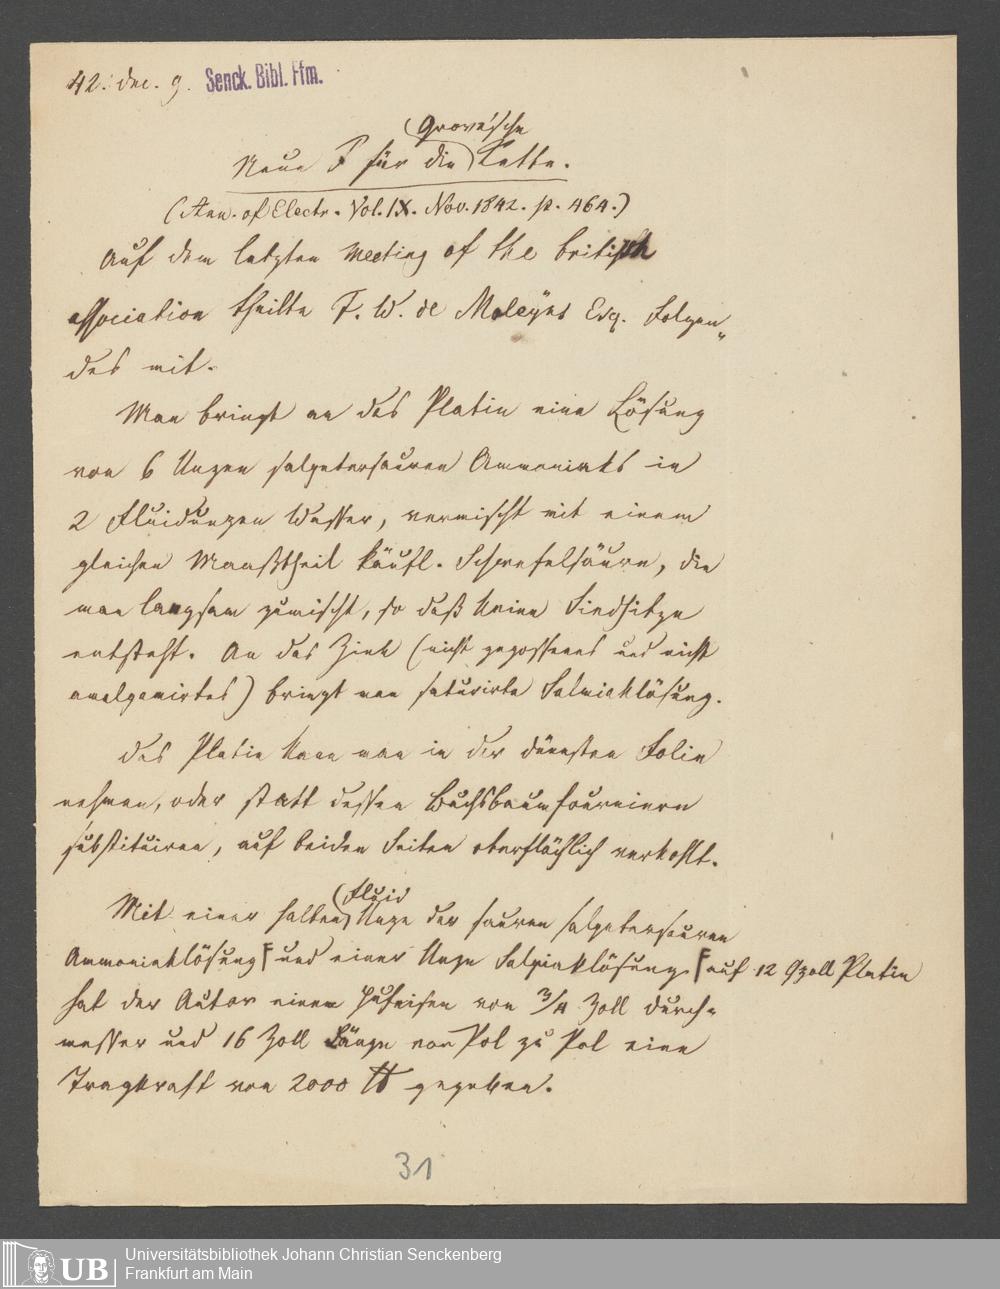 42. dec. 9. Senck. Bibl. Ffm.
Grove'sche
Neue F für die Kette.
(Ann. of Electr. Vol. IX. Nov. 1842. p. 464.)
Auf dem letzten Meeting of the british
association theilte F. W. de Moleyns Esq. Folgen„
des mit.
Man bringt an das Platin eine Lösung
von 6 Unzen salpetersauren Ammoniaks in
2 Fluidunzen Wasser, vermischt mit einem
gleichen Maaßtheil käufl. Schwefelsäure, die
man langsam zumischt, so daß keine Siedhitze
entsteht. An das Zink (nicht gegossenes und nicht
amalgamirtes) bringt man saturirte Salmiaklösung.
Das Platin kann man in der dünnsten Folie
nehmen, oder statt dessen Buchsbaumfourniere
substituiren, auf beiden Seiten oberflächlich verkohlt.
Fluid
Mit einer halben Unze der sauren salpetersauren
Ammoniaklösung F und einer Unze Salmiaklösung F auf 12 Qzoll Platin
hat der Autor einem Hufeisen von 3/4 Zoll Durch=
messer und 16 Zoll Länge von Pol zu Pol eine
Tragkraft von 2000 ℔ gegeben.
31
Universitätsbibliothek Johann Christian Senckenberg
Frankfurt am Main
UB